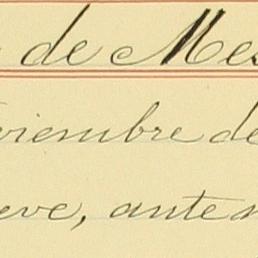 de Mes
viembre de
eve, ante